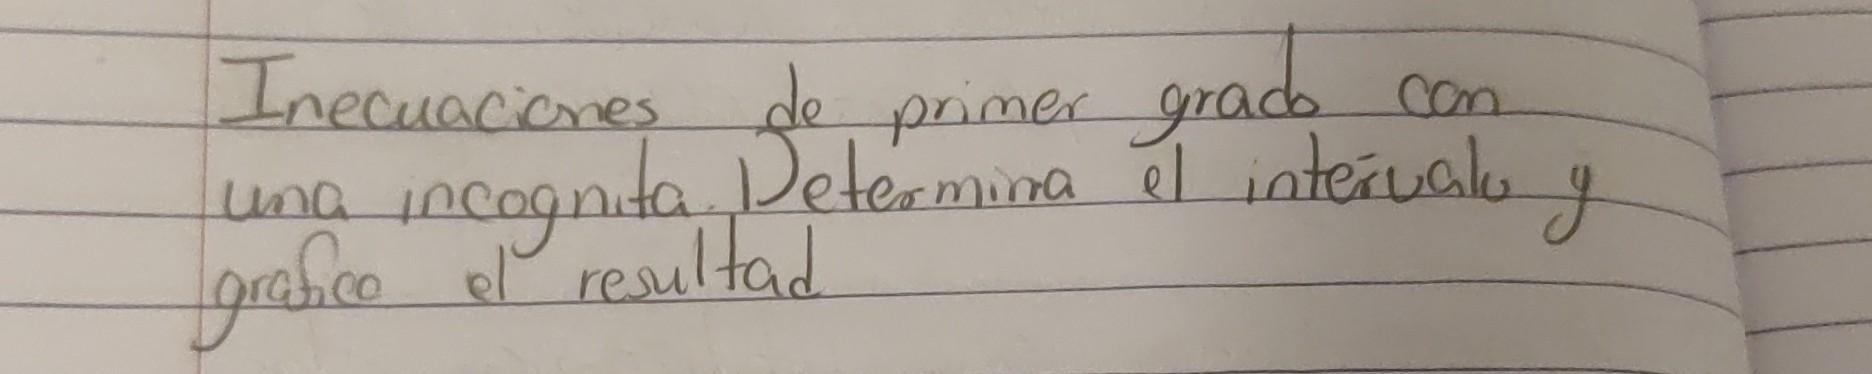 Inecuaciones de primer grado con
una incognita. Determina el intervalo y
grafica el resultad